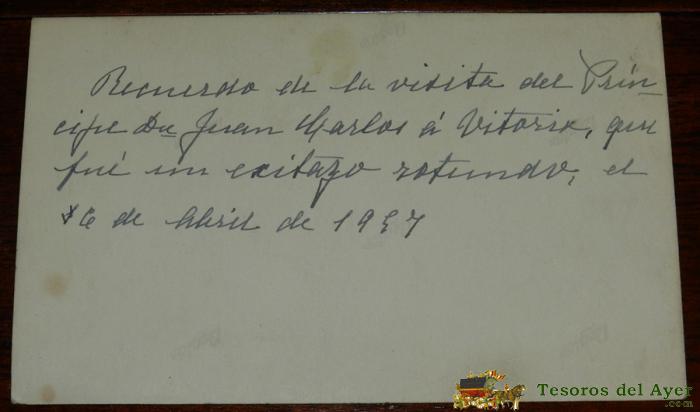 Recuerdo de la visita del Prín-
cipe Dn Juan Carlos á Vitoria, que
fué un exitazo rotundo, el
16 de Abril de 1957
Tesoros del Ayer
.com